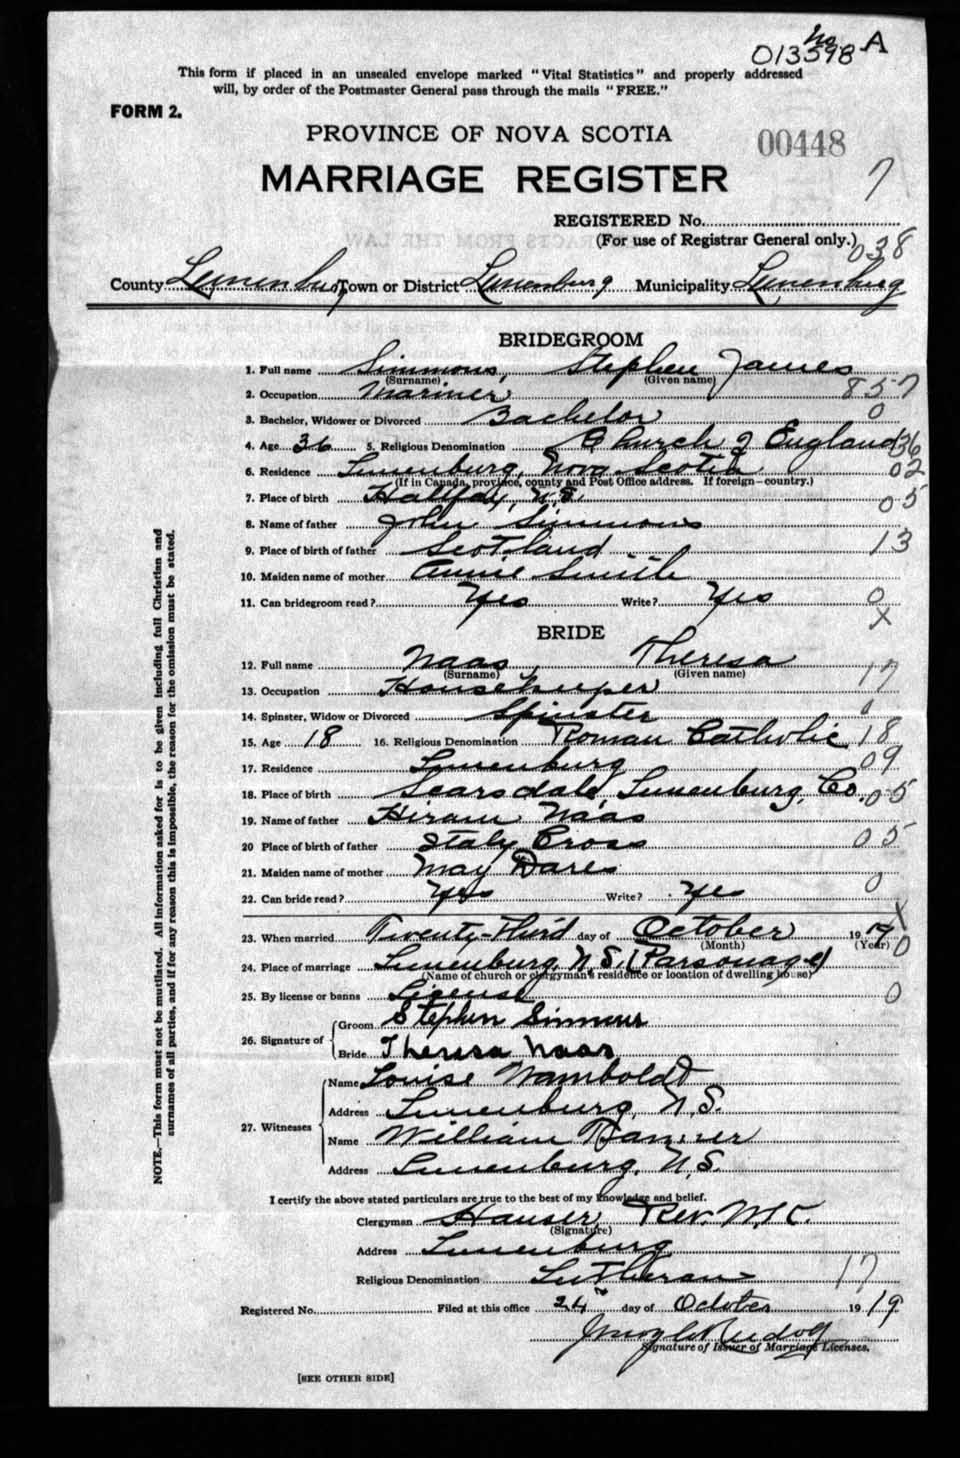 No
013598 A
This form if placed in an unsealed envelope marked "Vital Statistics" and properly addressed
will, by order of the Postmaster General pass through the mails "FREE."
FORM 2.
PROVINCE OF NOVA SCOTIA
00448
MARRIAGE REGISTER
7
REGISTERED No.
(For use of Registrar General only.)
038
County Lunenburg Town or District Lunenburg Municipality Lunenburg
BRIDEGROOM
1. Full name Simmons, Stephen James
(Surname) (Given name)
2. Occupation Mariner 857
3. Bachelor, Widower or Divorced Bachelor 0
4. Age 36 5. Religious Denomination Church of England 36
6. Residence Lunenburg, Nova Scotia 02
(If in Canada, province, county and Post Office address. If foreign—country.)
7. Place of birth Halifax, N.S. 05
8. Name of father John Simmons
9. Place of birth of father Scotland 13
10. Maiden name of mother Annie Smith
11. Can bridegroom read? Yes Write? Yes 0
X
BRIDE
12. Full name Naas, Theresa
(Surname) (Given name)
17
13. Occupation Housekeeper
14. Spinster, Widow or Divorced Spinster 0
15. Age 18 16. Religious Denomination Roman Catholic 18
17. Residence Lunenburg 09
18. Place of birth Scarsdale, Lunenburg, Co. 05
19. Name of father Hiram Naas
20 Place of birth of father Italy Cross 05
21. Maiden name of mother May Dares
22. Can bride read? Yes Write? Yes 0
X
23. When married Twenty-Third day of October 19 19
(Month) (Year)
0
24. Place of marriage Lunenburg, N.S. (Parsonage)
(Name of church or clergyman's residence or location of dwelling house)
25. By license or banns License 0
26. Signature of
Groom Stephen Simmons
Bride Theresa Naas
27. Witnesses
Name Louise Wamboldt
Address Lunenburg, N.S.
Name William
Address Lunenburg, N.S.
NOTE.—This form must not be mutilated. All information asked for is to be given including full Christian and
surnames of all parties, and if for any reason this is impossible, the reason for the omission must be stated.
I certify the above stated particulars are true to the best of my knowledge and belief.
Clergyman Hauser, Rev.
(Signature)
Address Lunenburg
Religious Denomination Lutheran 17
Registered No. Filed at this office 24 day of October 19 19
Signature of Issuer of Marriage Licenses.
[SEE OTHER SIDE]